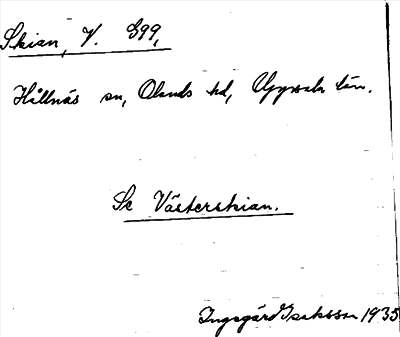 Skian, V. Egg,
Hållnäs sn, Olands hd, Uppsala län.
Se Västerskian.
Ingegärd Isaksson 1935